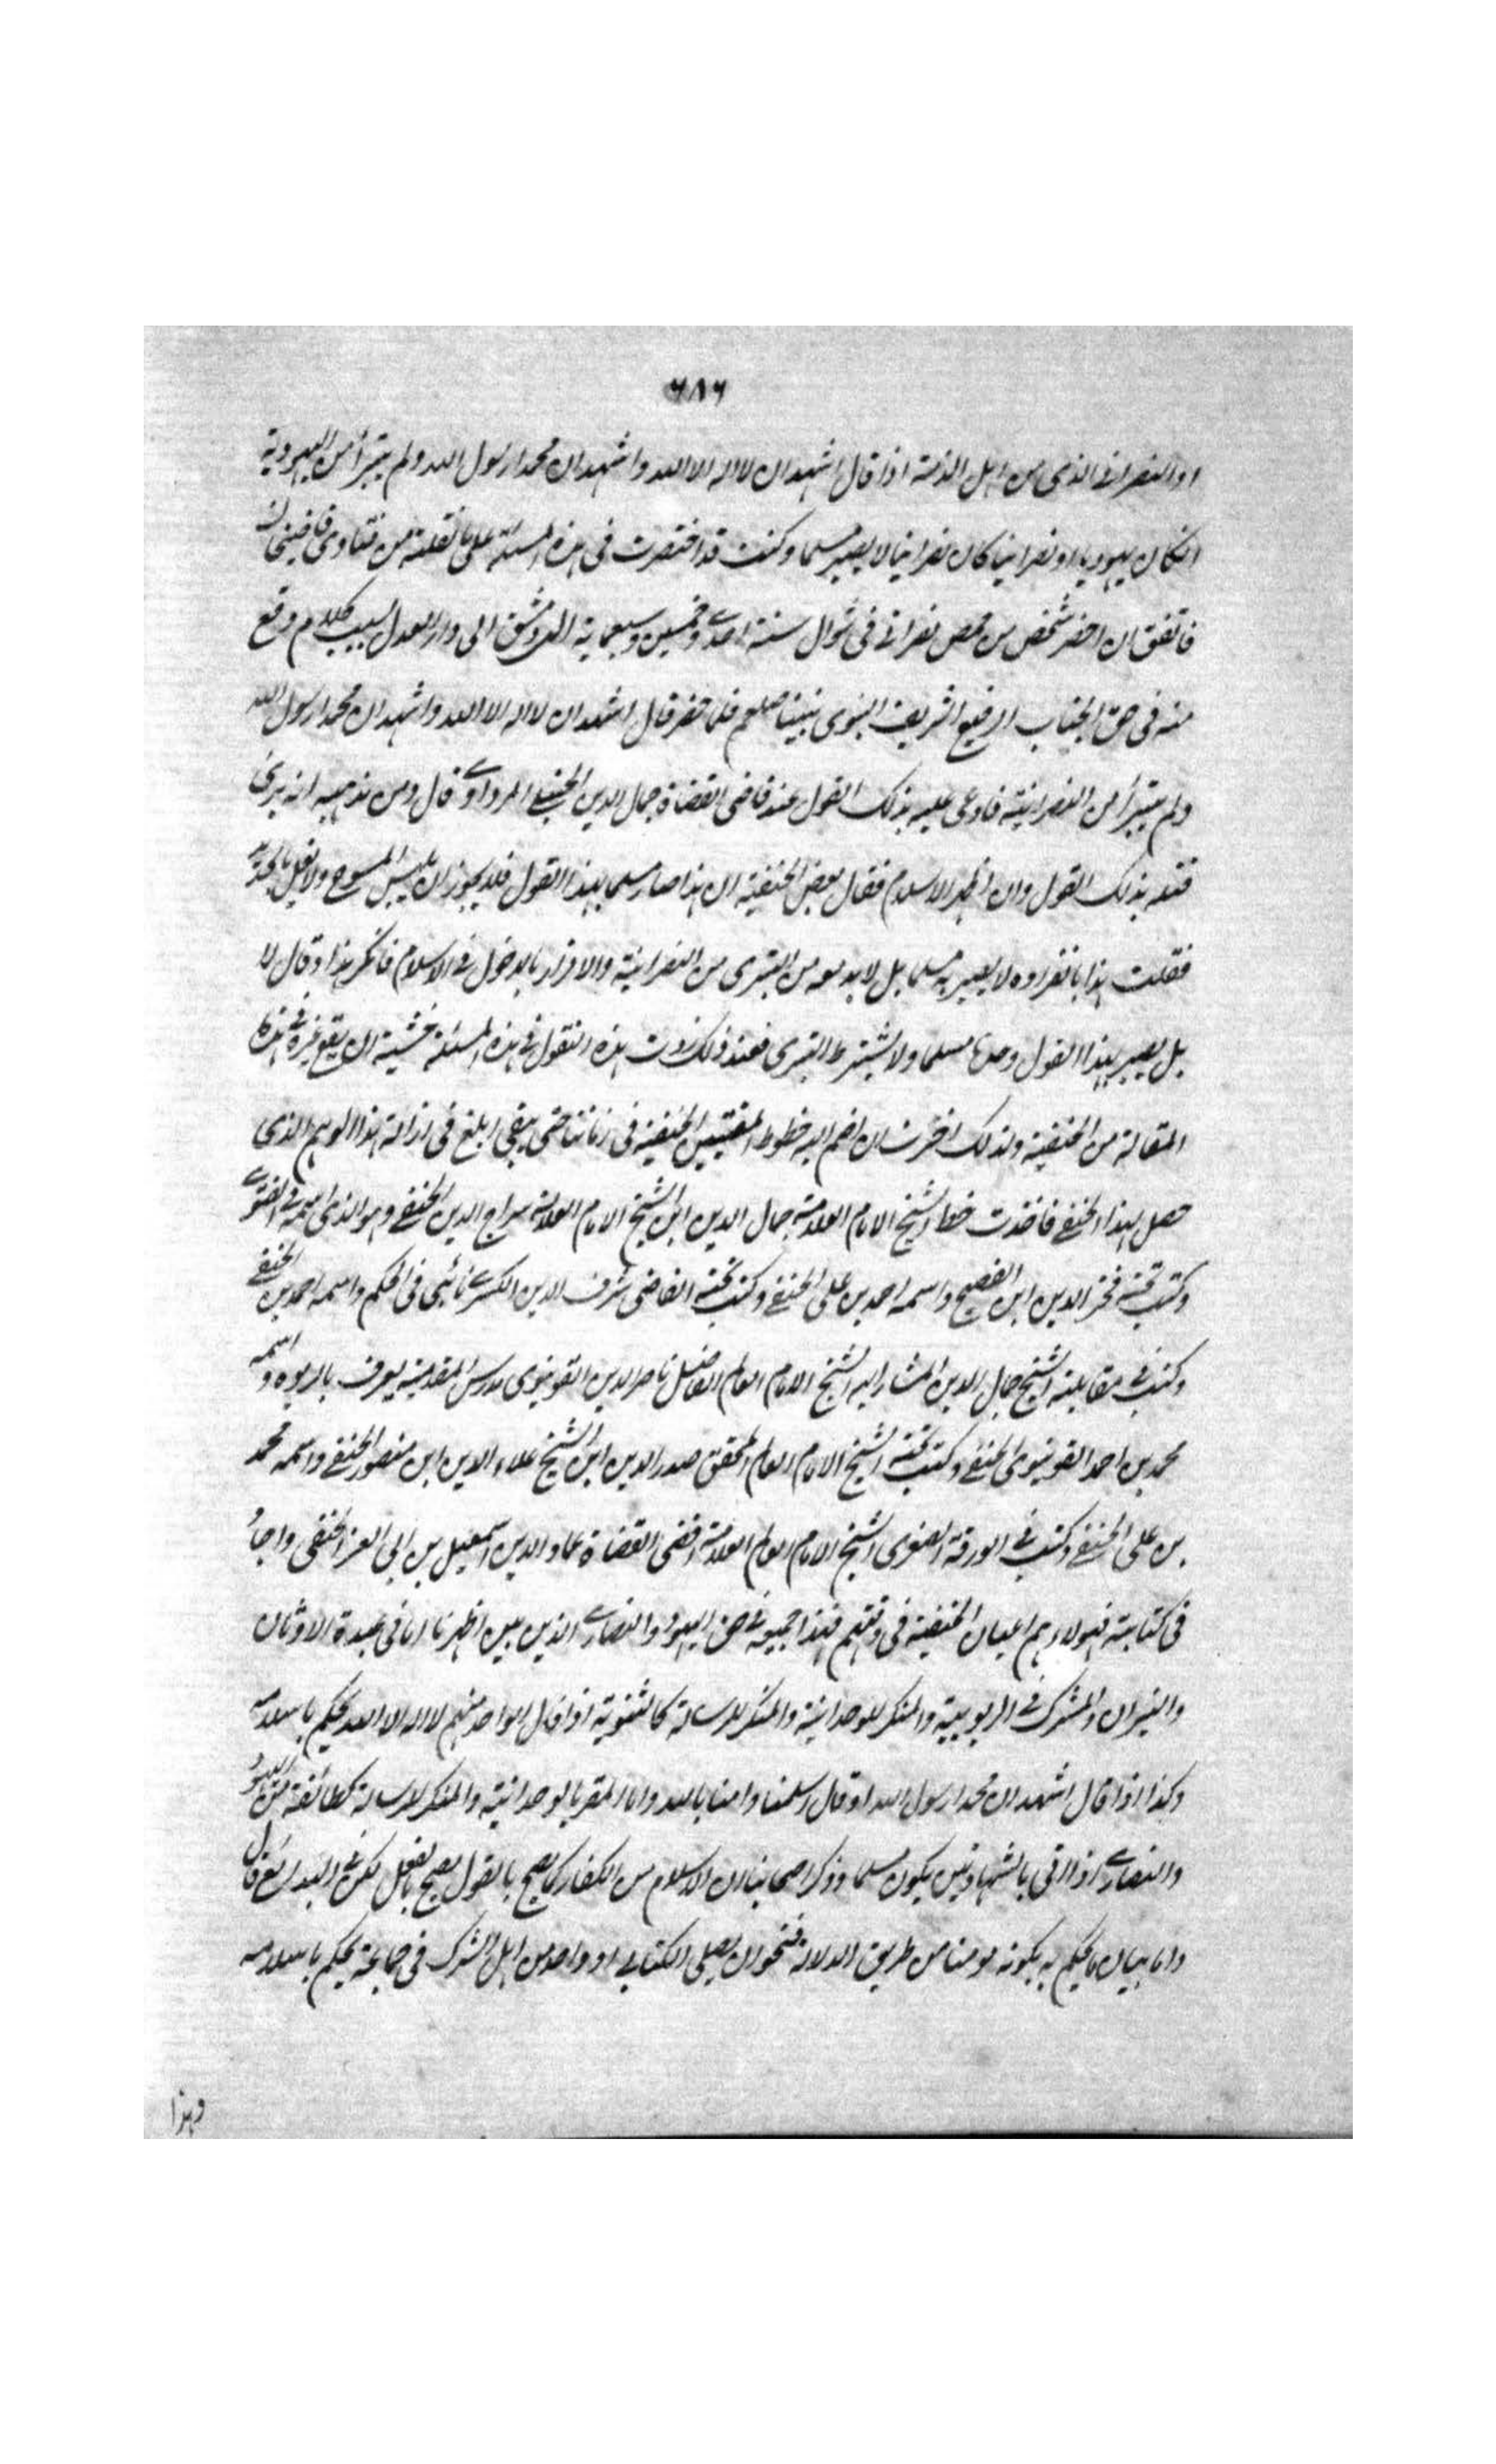 ٦٨٦
او النصرانے الذی من اہل الذمۃ اذا قال اشہد ان لا الہ الا اللہ و اشہد ان محمدا رسول اللہ ولم یتبرأ من الیہودیۃ
انکان یہودیا او نصرانیا کان نصرانیا لا یصیر مسلما وکنت قد اختصرت فی ہذہ المسئلۃ علی ما نقلتہ من فتاوی قاضیخان
فاتفق ان احضر شخص من حمص نصرانے فی شوال سنۃ احدے وخمسین وسبعمایۃ الی دمشق الی دار العدل بسبب کلام وقع
منہ فی حق الجناب الرفیع الشریف النبوی نبینا صلعم فلما حضر قال اشہد ان لا الہ الا اللہ واشہد ان محمدا رسول اللہ
ولم یتبرأ من النصرانیۃ فادعی علیہ بذلک القول عند قاضی القضاۃ جمال الدین الحنبلے المرداوے قال ومن مذہبہ انہ یری
قتلہ بذلک القول وان اظہر الاسلام فقال بعض الحنفیۃ ان ہذا صار مسلما بہذا القول فلا یجوز ان یلبس المسوح ولا یغل بالحدید
فقلت ہذا بانفرادہ لا یصیر بہ مسلما بل لا بد معہ من التبری من النصرانیۃ والاقرار بالدخول فے الاسلام فانکر ہذا وقال لا
بل یصیر بہذا القول وحدہا مسلما ولا یشترط التبری فعند ذلک زوت ہذہ النقول فے ہذہ المسئلۃ خشیۃ ان یقع غیرہ فے ہذہ
المقالۃ من الحنفیۃ ولذلک اخترت ان اضم الیہ خطوط المفتیین الحنفیۃ فی زماننا حتی یبقی ابلغ فی ازالۃ ہذا الوہم الذی
حصل لہذا الحنفے فاخذت خط الشیخ الامام العلامۃ جمال الدین ابن الشیخ الامام العلامۃ سراج الدین الحنفے وہو الذی اسمہ فے الفتوے
وکتب تحتہ فخر الدین ابن الفصیح واسمہ احمد بن علی الحنفے وکتب تحتہ القاضی شرف الدین الکسرے نائبی فی الحکم واسمہ احمد بن الحنفے
وکتب فے مقابلۃ الشیخ جمال الدین المشار الیہ الشیخ الامام العالم الفاضل ناصر الدین القونوی مدرس المقدمیۃ یعرف بالربوہ و اسمہ
محمد بن احمد القونوی الحنفے وکتب تحتہ الشیخ الامام العالم المحقق صدر الدین ابن الشیخ علاء الدین ابن منصور الحنفے واسمہ محمد
بن علی الحنفے وکتب فے الورقۃ الصغری الشیخ الامام العالم العلامۃ اقضی القضاۃ عماد الدین اسمعیل بن ابی العز الحنفی واجاد
فی کتابتہ فہولاء ہم اعیان الحنفیۃ فی وقتہم فہذا جمیعہ فے حق الیہود والنصارے الذین بین اظہرنا اما فی عبدۃ الاوثان
والنیران والمشرک فے الربوبیۃ والمنکر للوحدانیۃ والمنکر للرسالۃ کالثنویۃ اذا قال الواحد منہم لا الہ الا اللہ یحکم باسلامہ
وکذا اذا قال اشہد ان محمدا رسول اللہ او قال اسلمنا وامنا باللہ واما المقر بالوحدانیۃ والمنکر للرسالۃ کطائفۃ من الیہود
والنصارے اذا اتی بالشہادتین یکون مسلما وذکر اصحابنا ان الاسلام من الکفار کما یصح بالقول یصح بالفعل لکن فے البدائع قال
واما بیان ما یحکم بہ بکونہ مومنا من طریق الدلالۃ فنحو ان یصلی الکتابے او واحد من اہل الشرک فی جماعۃ یحکم باسلامہ
وہذا